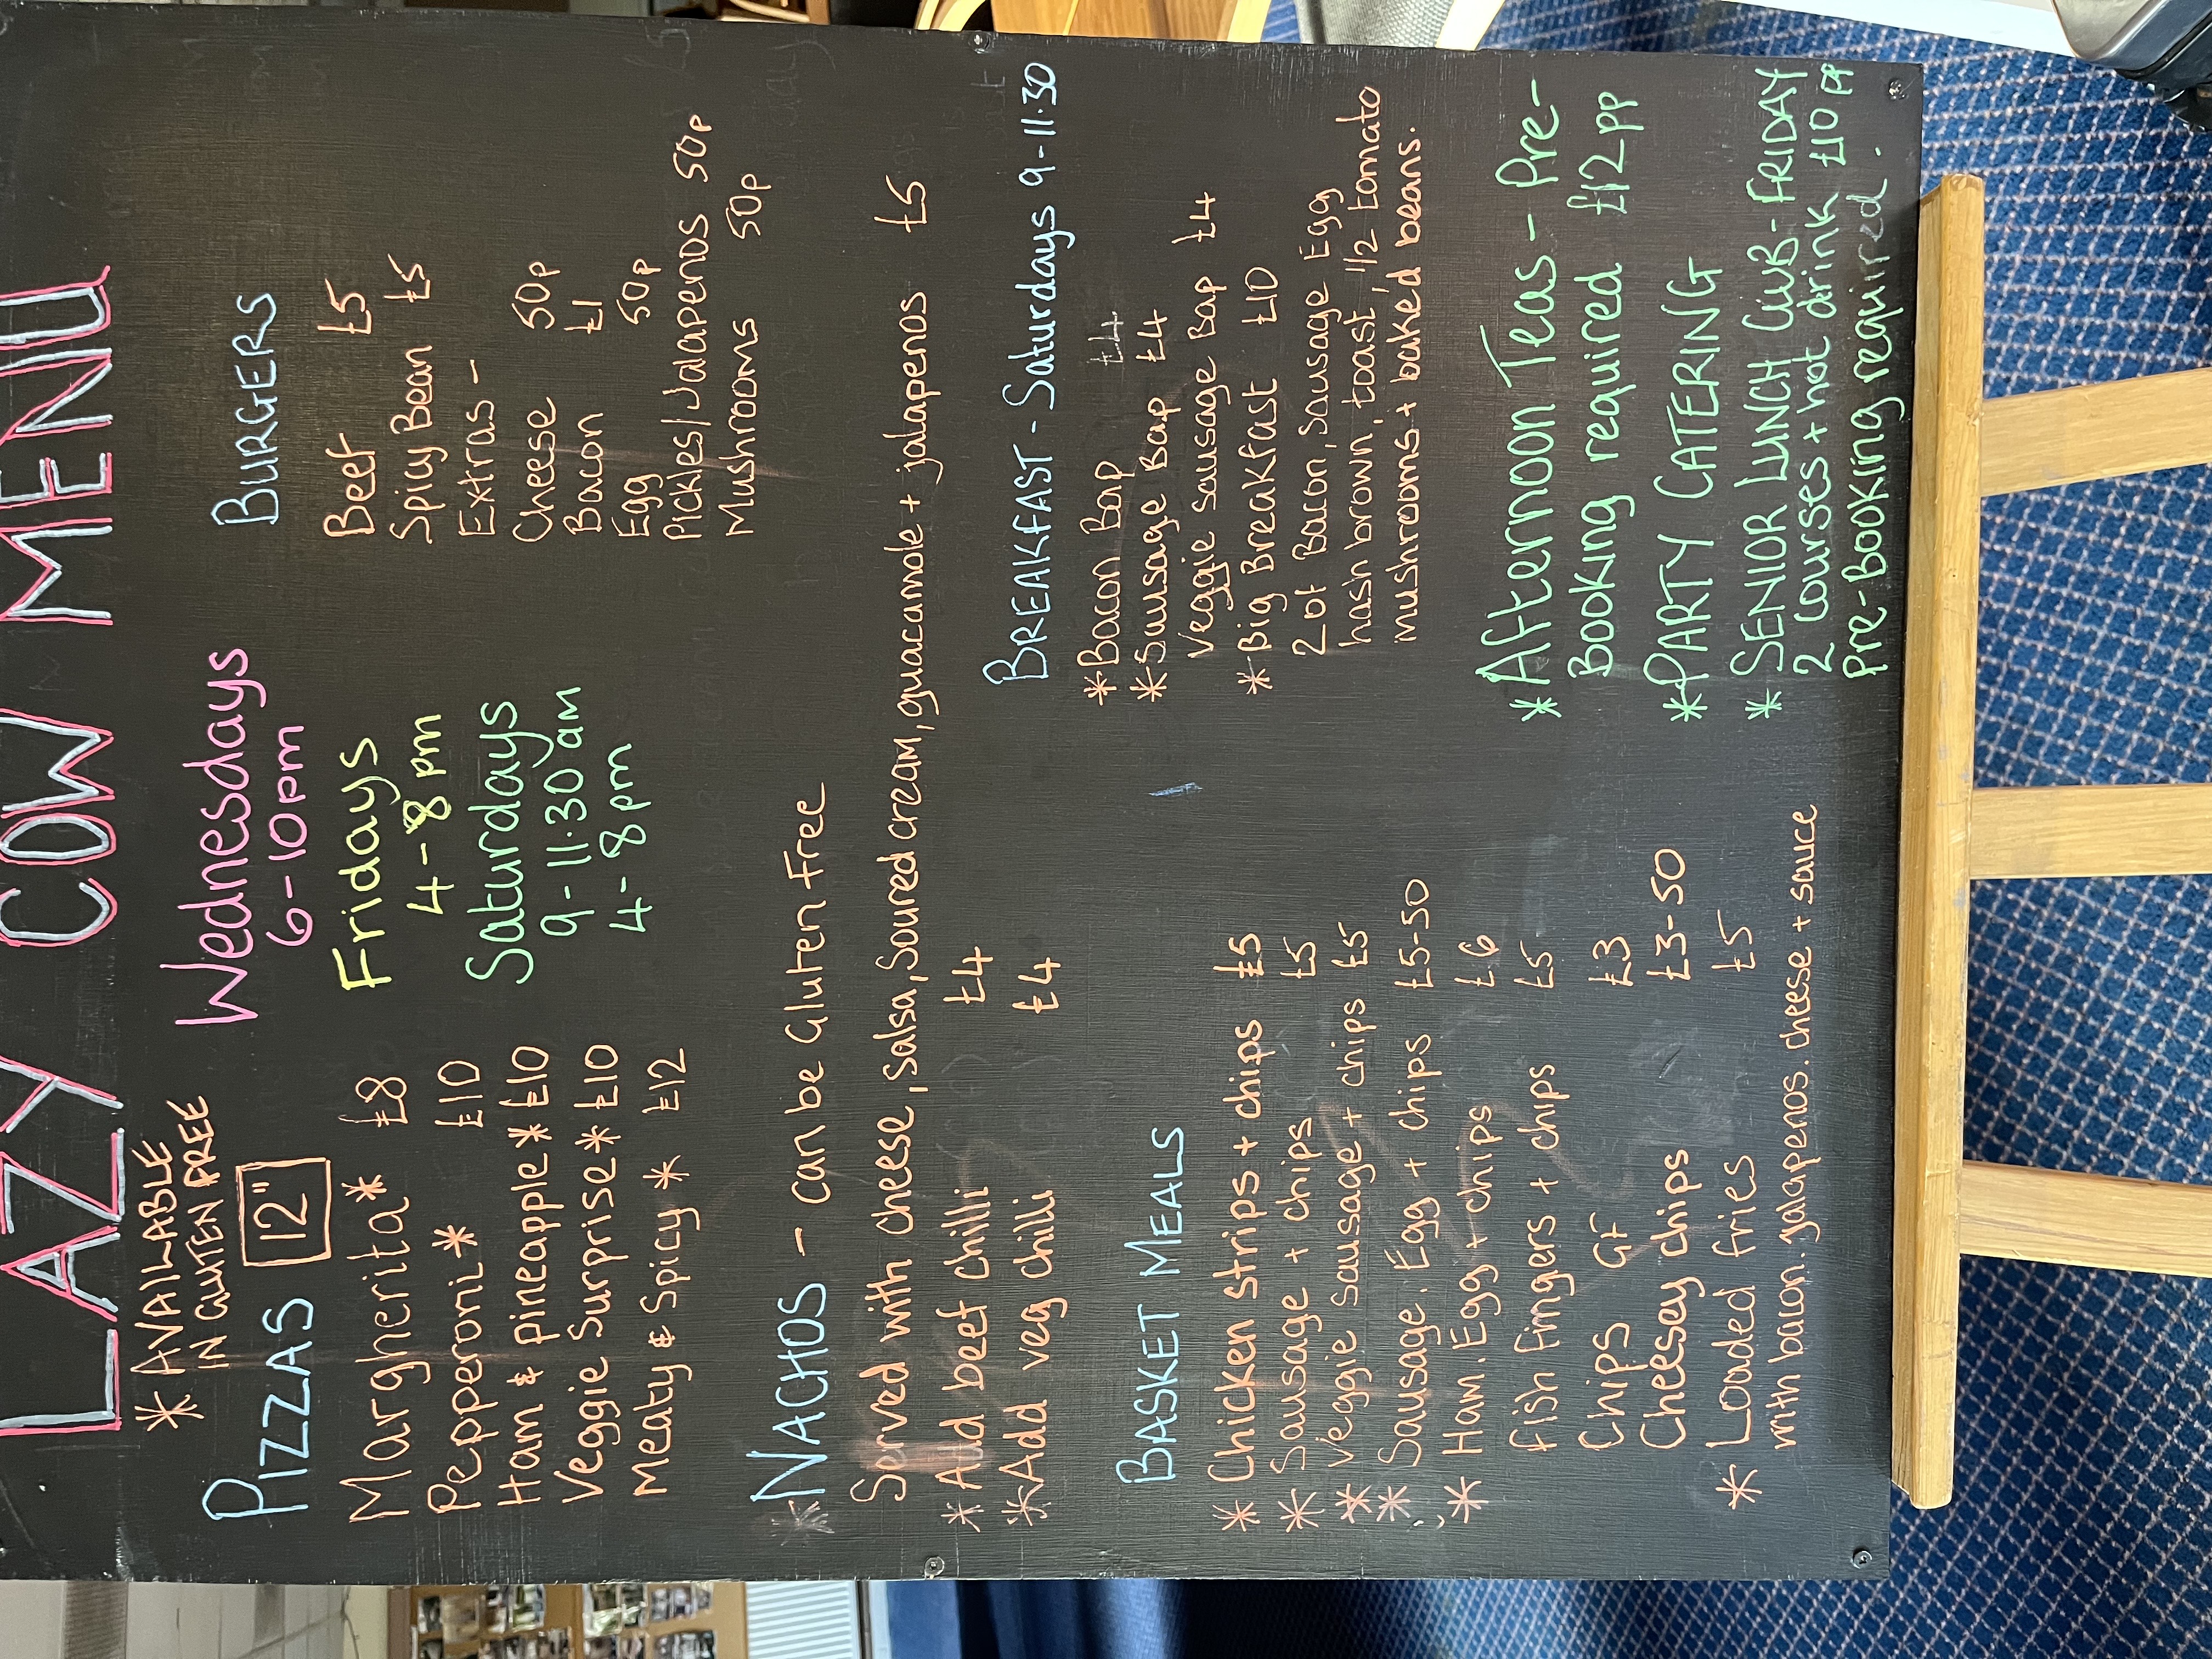 LAZY COW MENU
* AVAILABLE
IN GLUTEN FREE
PIZZAS 12"
Margherita * £8
Pepperoni * £10
Ham & pineapple * £10
Veggie Surprise * £10
Meaty & Spicy * £12
Wednesdays
6-10pm
Fridays
4-8pm
Saturdays
9-11.30am
4-8pm
BURGERS
Beef £5
Spicy Bean £5
Extras -
Cheese 50p
Bacon £1
Egg 50p
Pickles/Jalapenos 50p
Mushrooms 50p
* NACHOS - can be Gluten Free
Served with cheese, salsa, soured cream, guacamole + jalapenos £5
* Add beef chilli £4
* Add veg chilli £4
BASKET MEALS
* Chicken strips + chips £5
* Sausage + chips £5
* Veggie sausage + chips £5
* Sausage, Egg + chips £5-50
* Ham, Egg + chips £6
Fish fingers + chips £5
Chips GF £3
Cheesey chips £3-50
* Loaded fries £5
with bacon, jalapenos, cheese + sauce
BREAKFAST - Saturdays 9-11.30
* Bacon Bap £4
* Sausage Bap £4
Veggie sausage Bap £4
* Big Breakfast £10
2 of Bacon, Sausage Egg
hash brown, toast, 1/2 tomato
mushrooms + baked beans.
* Afternoon Teas - Pre-
Booking required £12pp
* PARTY CATERING
* SENIOR LUNCH CLUB - FRIDAY
2 courses + hot drink £10 pp
Pre-booking required.